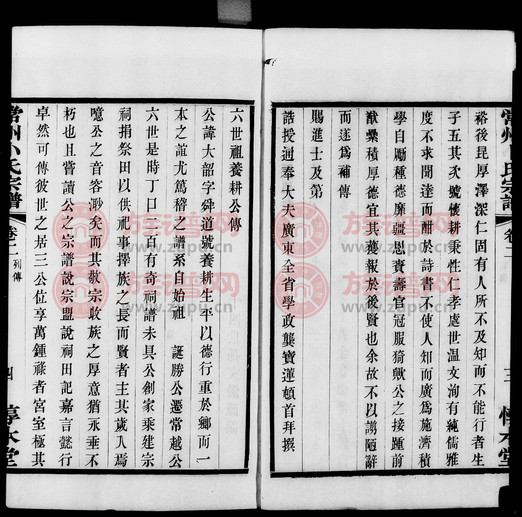 裕後昆厚澤深仁固有人所不及知而不能行者生
子五其次號懷耕秉性仁孝處世溫文洵有純儒雅
度不求聞達而酣於詩書不使人知而廣爲施濟積
學自屬種德靡疆恩賚壽官冠服猗歟公之接踵前
猷纍積厚德宜其獲報於後賢也余故不以謭陋辭
而遂爲補傳
賜進士及第
誥授通奉大夫廣東全省學政龔寶蓮頓首拜撰
常州 氏宗譜
卷二
三
惇本堂
六世祖養耕公傳
公諱大韶字舜道號養耕生平以德行重於鄉而一
本之誼尤篤稽之譜系自始祖 誕勝公遷常越公
六世是時丁口三百有奇祠譜未具公創家乘建宗
祠捐祭田以供祀事擇族之長而賢者主其歲入焉
噫公之音容渺矣而其敬宗收族之厚意猶永垂不
朽也且嘗讀公之宗譜說宗盟說祠田記嘉言懿行
卓然可傳彼世之居三公位享萬鍾祿者宮室極其
常州 氏宗譜
卷二
列傳
四
惇本堂
族谱网
zupu.cn